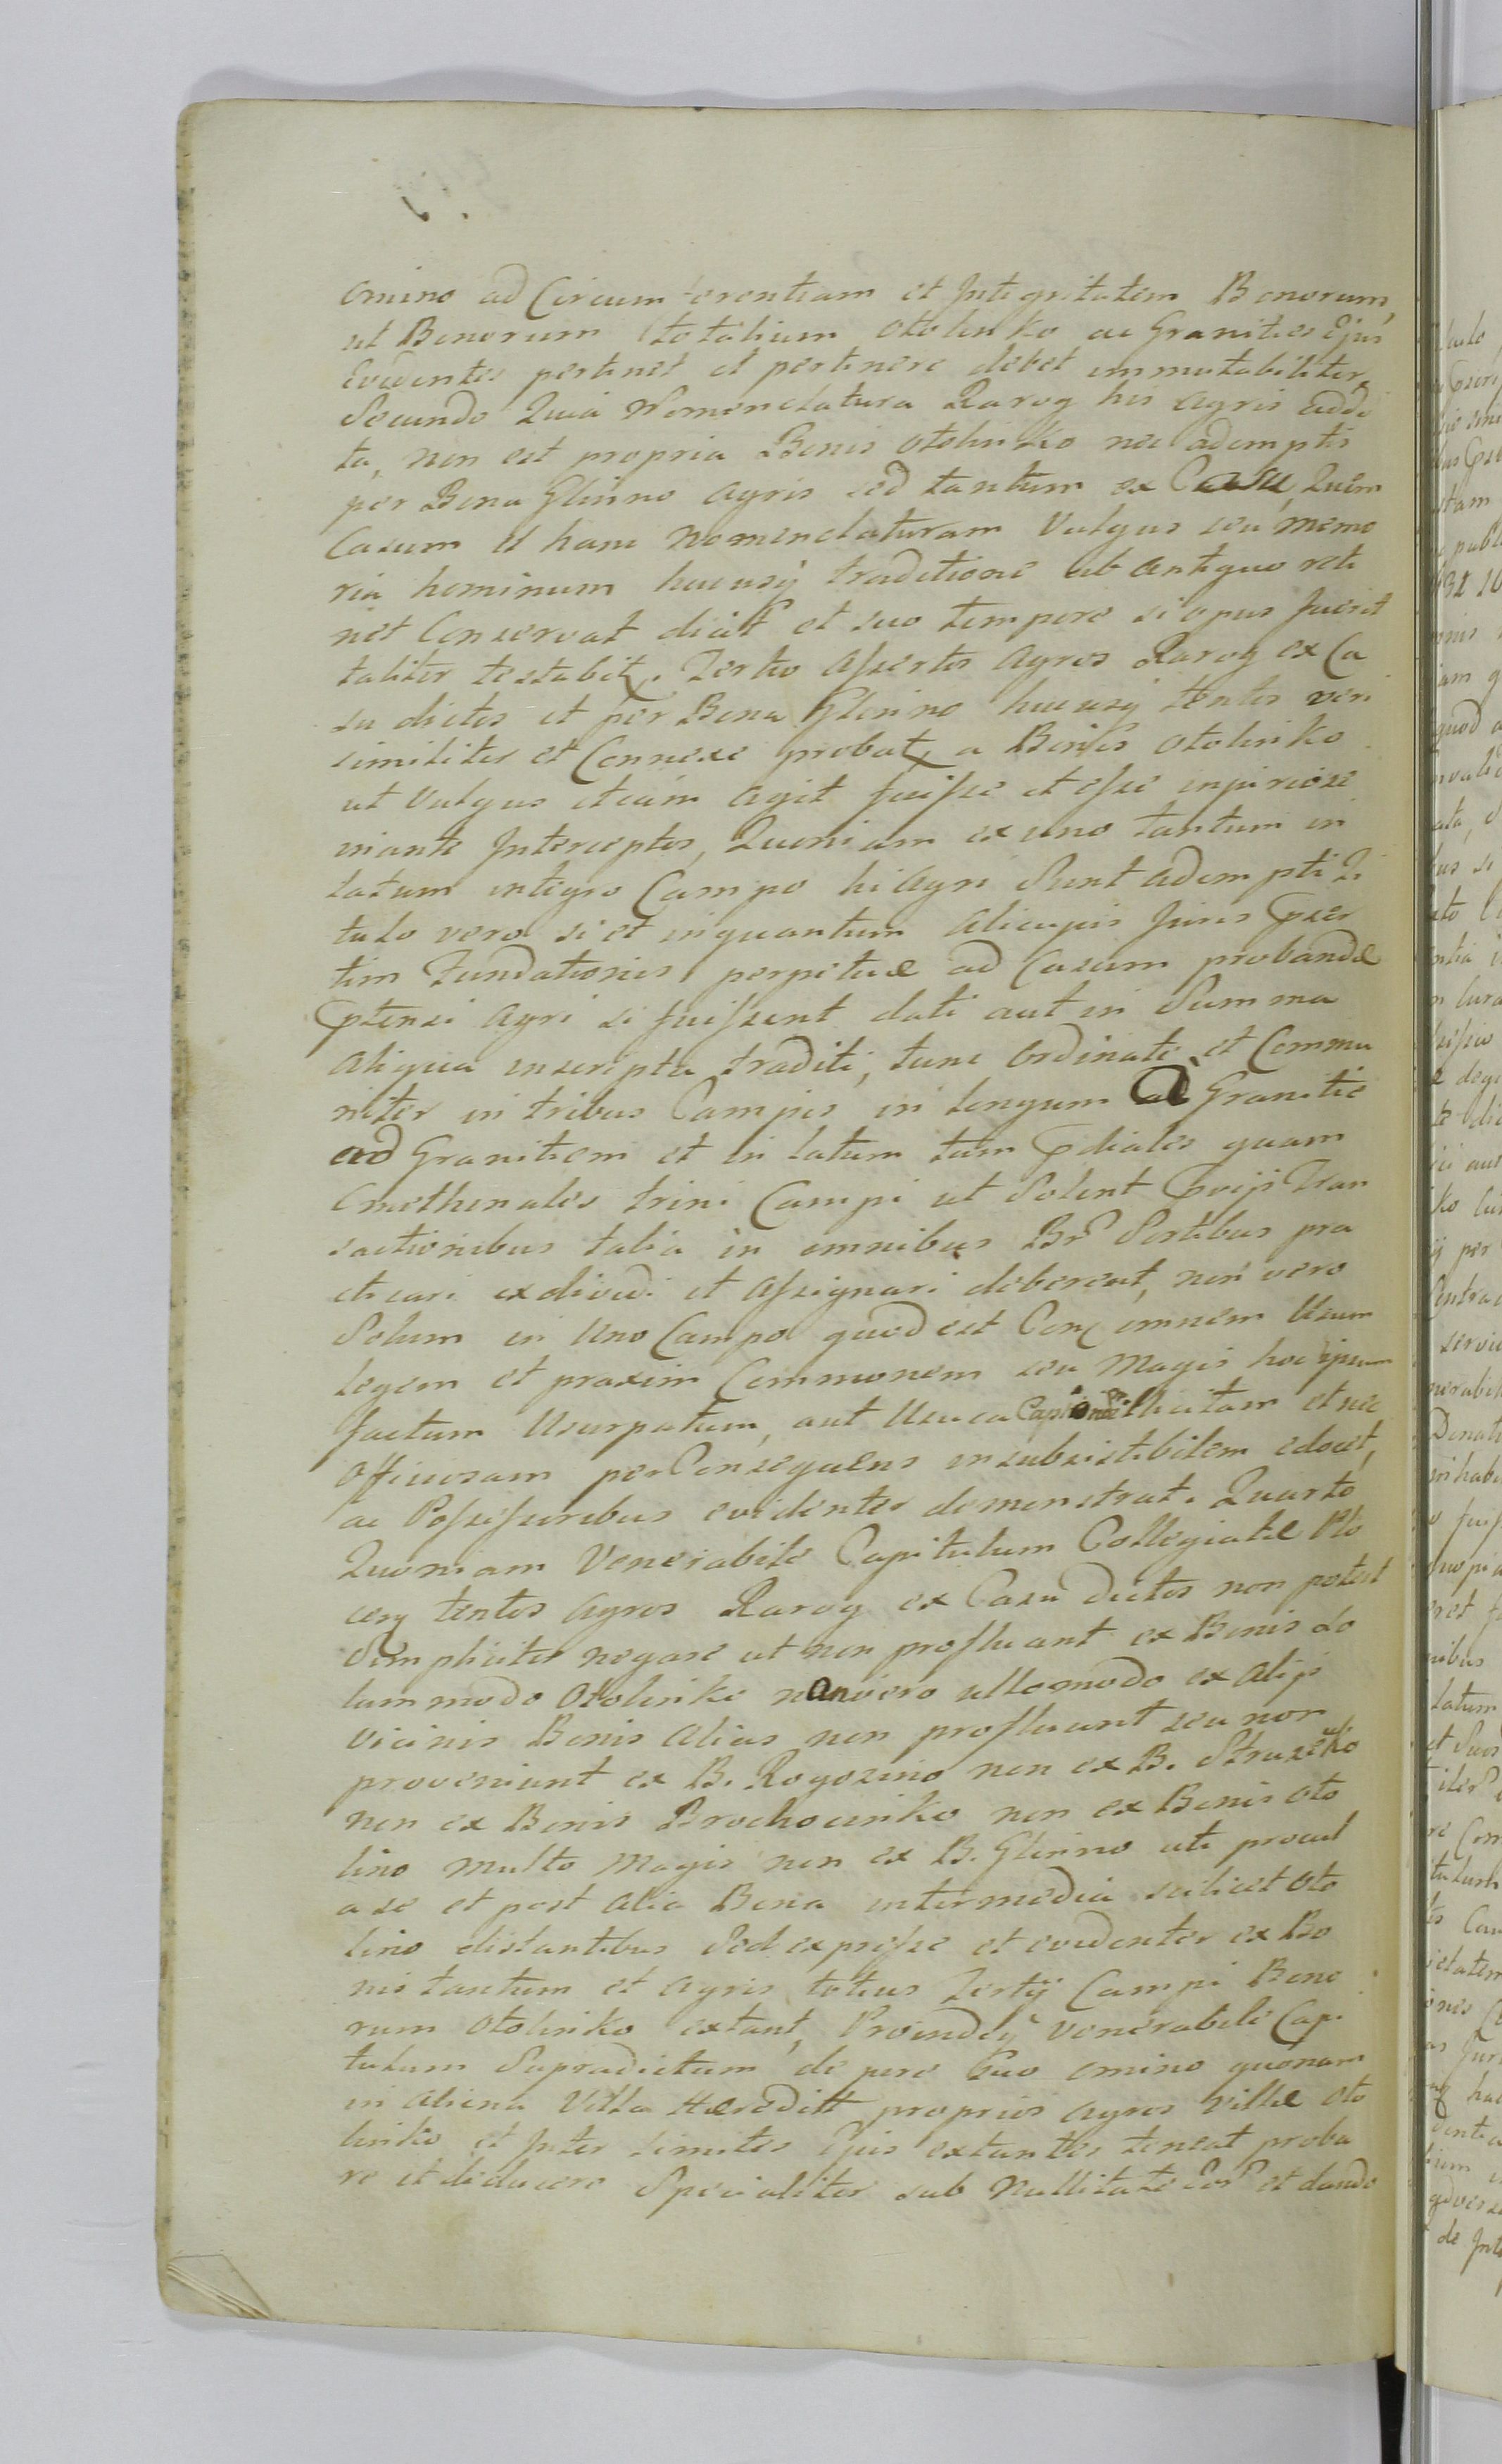 omino ad Circumferentiam et Integritatem Bonorum,
ut Bonorum totalium Otolinko ac Granities Ejus
Evidentes pertinet et pertinere debet immutabiliter.
Secundo Quia Nomenclatura Rarog his Agris addi
ta, non est propria Bonis Otolinko nec ademptis
per Bona Glinno Agris sed tantum ex Casu, Quem
Casum et hanc Nomenclaturam Vulgus seu memo
ria hominum hucusq traditione ab antiquo reti
net Conservat dicit et suo tempore si opus fuerit
taliter testabit. Tertio Assertos Agros Rarog ex Ca
su dictos et per Bona Glinno hucusq tentos veri
similiter et Connexe probat a Bonis Otolinko
ut Vulgus etiam Agit fuisse et esse injuriose
Interceptos, Quoniam ex uno tantum in
latum integro Campo hi Agri Sunt adempti Ti
tulo vero si et inquantum alicujus Juris
tim Fundationis perpetuæ ad Casum probandæ
ptensi Agri si fuissent dati aut in Summa
aliqua inscripta traditi, tunc Ordinate et Commu
niter in tribus Campis in longum a Granitie
ad Granitiem et in latum tam pdiales quam
Cmethonales trini Campi ut Solent Tran
sactionibus talia in omnibus Br Sortibus pra
cticari exdividi et Assignari deberent, non vero
Solum in Uno Campo quod est omnem Usum
legem et praxim Communem seu Magis hoc ipsum
factum Usurpatum, aut Usucapionem illicitam et nec
Officiosam per Consequens insubsistibilem edocet,
ac Possessoribus evidenter demonstrat. Quarto
Quoniam Venerabile Capitulum Collegiatæ Plo
cen tentos Agros Rarog ex Casu dictos non potest
Simpliciter negare ut non profluant ex Bonis So
lummodo Otolinko non vero ullomodo ex Alijs
Vicinis Bonis Alias non profluunt seu non
proveniunt ex B. Rogozino non ex B. Struzewko
non ex Bonis Brochocinko non ex Bonis Oto
lino multo Magis non ex B. Glinno uti procul
a se et post alia Bona intermedia scilicet Oto
lino distantibus Sed expresse et evidenter ex Bo
nis tantum et Agris totius Tertij Campi Bono
rum Otolinko extant, Proindeq Venerabile Capi
tulum Supradictum de jure Suo omino quonam
in aliena Villa Hæreditt proprios Agros Villæ Oto
linko et Inter limites Ejus extantes teneat proba
re et deducere Specialiter sub Nullitate et dando